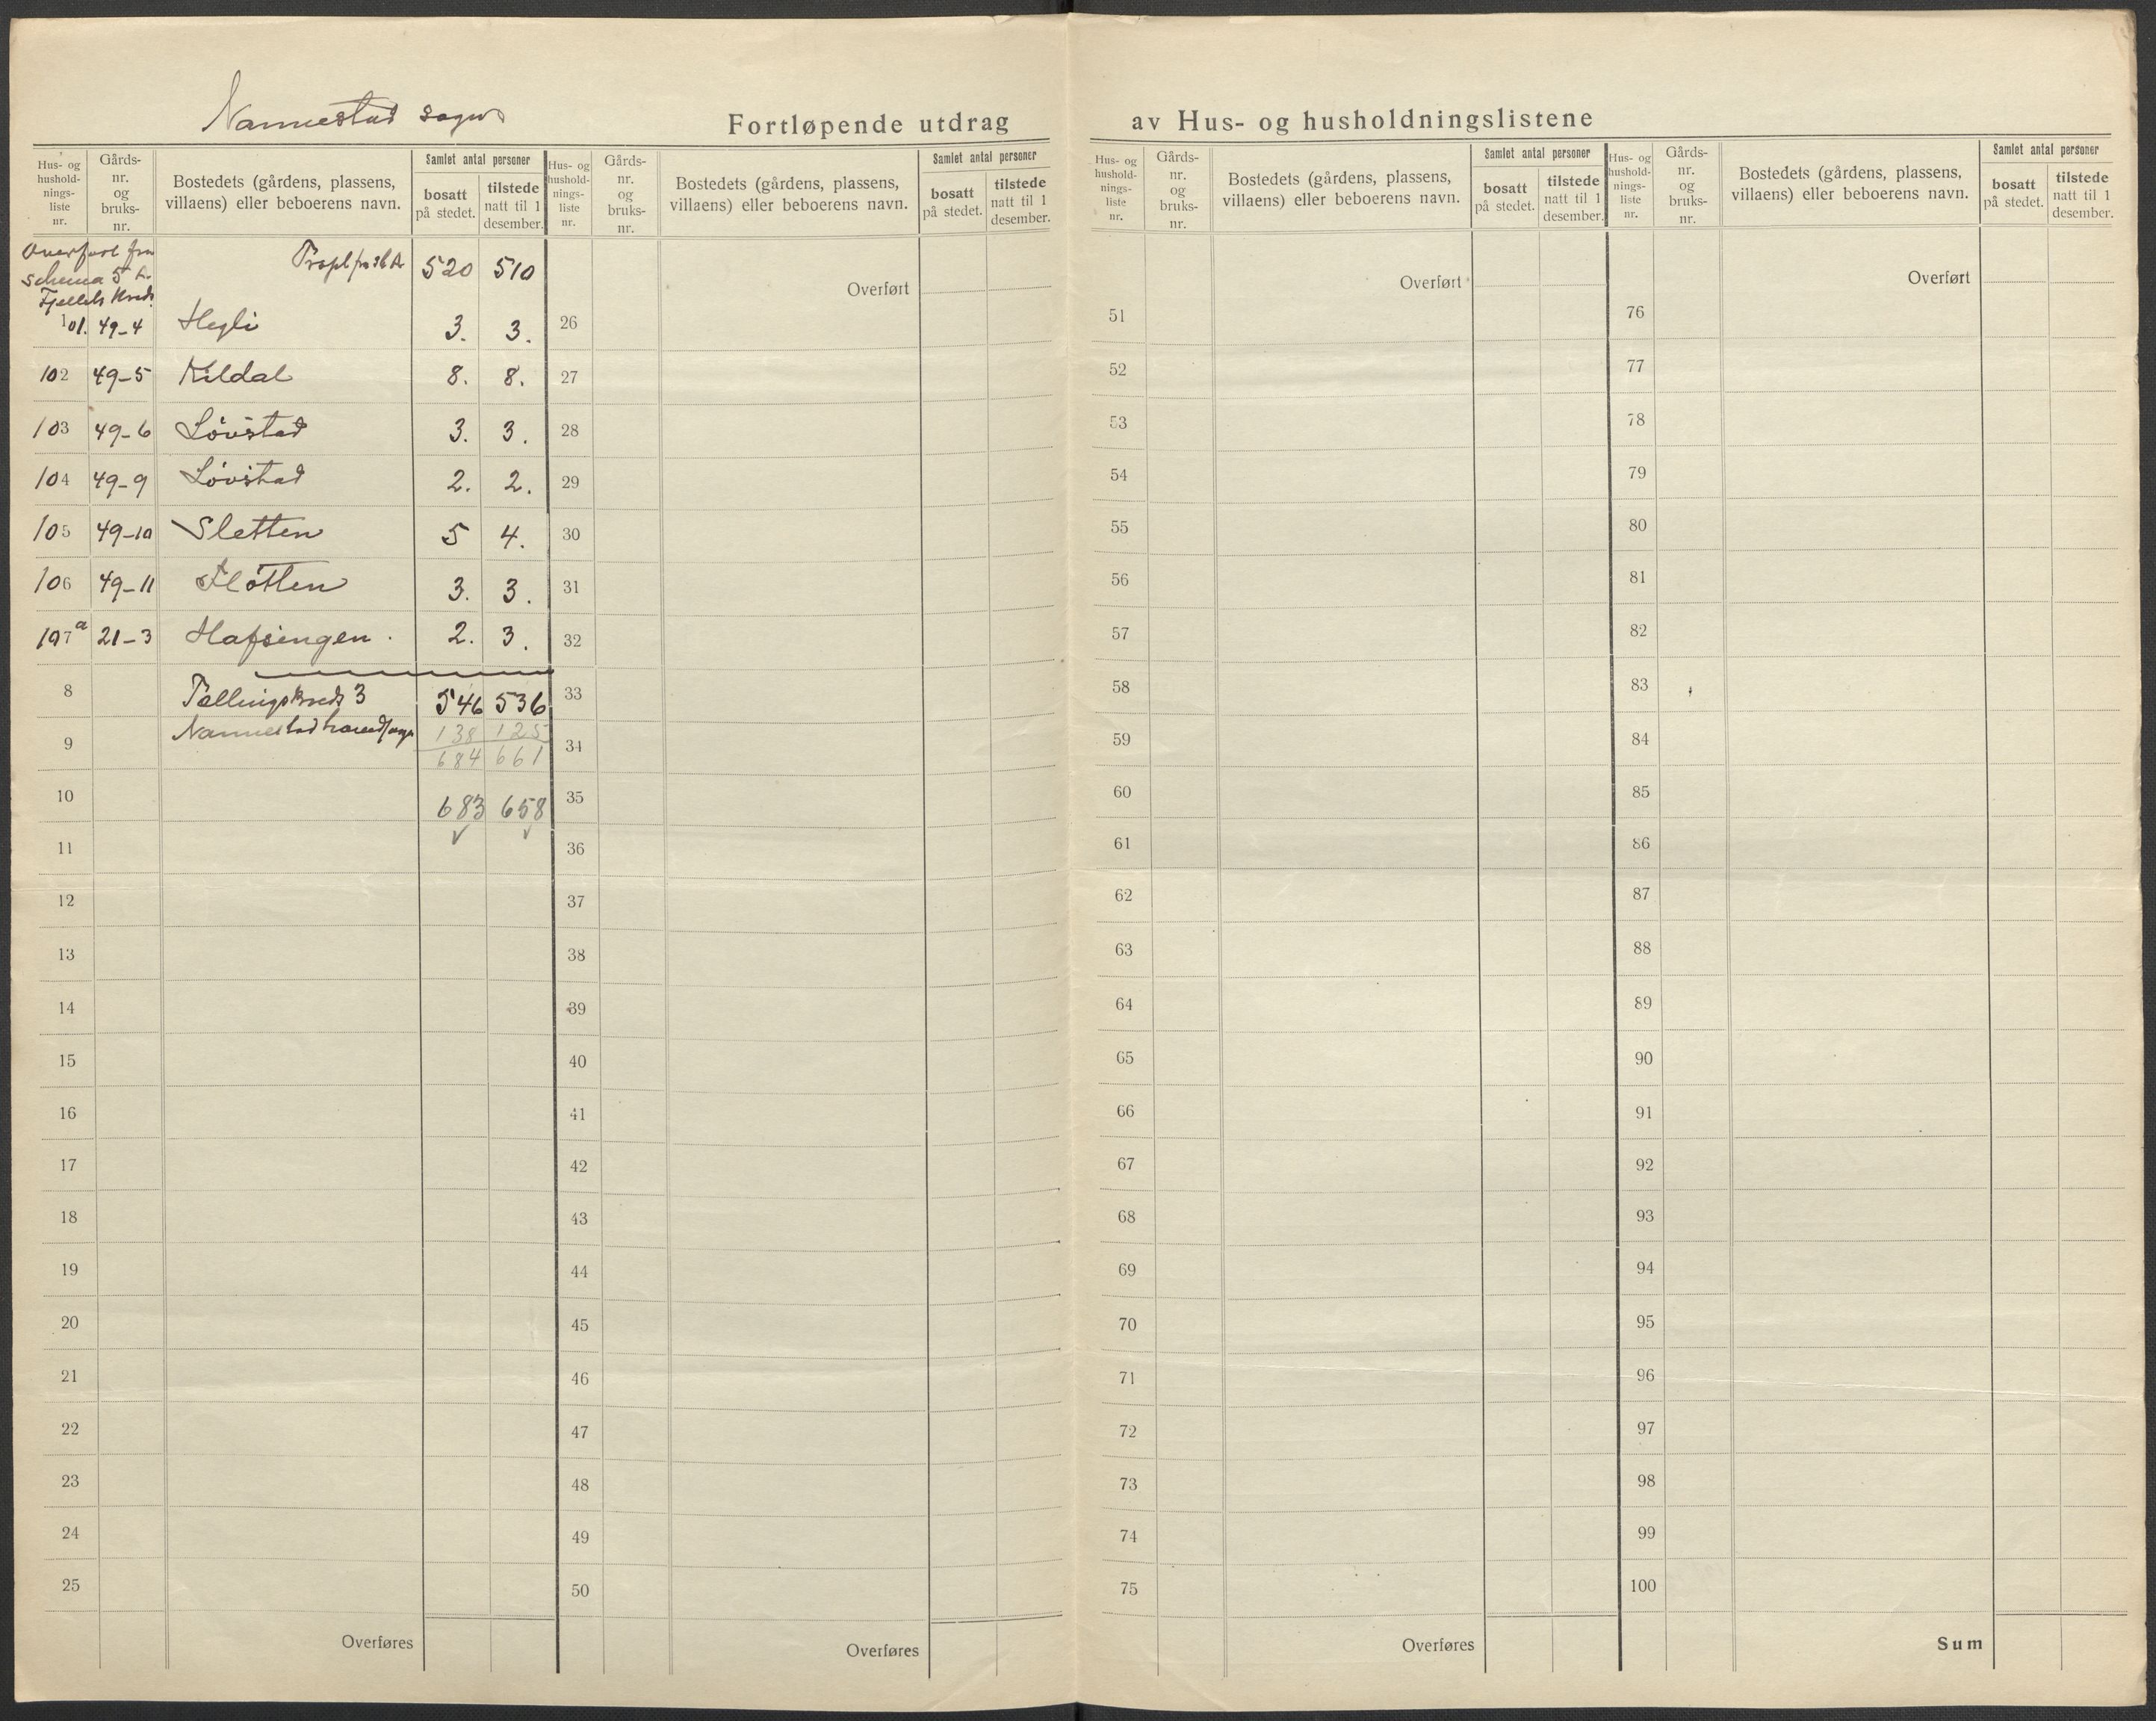 Nannestad sogn
Fortløpende utdrag av Hus- og husholdningslistene
Hus- og hushold-nings-liste nr. Gårds-nr. og bruks-nr. Bostedets (gårdens, plassens, villaens) eller beboerens navn. Samlet antal personer bosatt på stedet. tilstede natt til 1 desember.
Hus- og hushold-nings-liste nr. Gårds-nr. og bruks-nr. Bostedets (gårdens, plassens, villaens) eller beboerens navn. Samlet antal personer bosatt på stedet. tilstede natt til 1 desember.
Hus- og hushold-nings-liste nr. Gårds-nr. og bruks-nr. Bostedets (gårdens, plassens, villaens) eller beboerens navn. Samlet antal personer bosatt på stedet. tilstede natt til 1 desember.
Hus- og hushold-nings-liste nr. Gårds-nr. og bruks-nr. Bostedets (gårdens, plassens, villaens) eller beboerens navn. Samlet antal personer bosatt på stedet. tilstede natt til 1 desember.
Overført fra
schema 5
520 510
101. 49-4 Hegli 3. 3.
102 49-5 Kildal 8. 8.
103 49-6 Løvstad 3. 3.
104 49-9 Løvstad 2. 2.
105 49-10 Sletten 5 4.
106 49-11 Fløtten 3. 3.
107 a 21-3 Hafsengen. 2. 3.
8 Tellingskreds 3 546 536
Nannestad hovedsogn 138 125
9
684 661
10 683 658
11
12
13
14
15
16
17
18
19
20
21
22
23
24
25
Overføres
Overført
26
27
28
29
30
31
32
33
34
35
36
37
38
39
40
41
42
43
44
45
46
47
48
49
50
Overføres
Overført
51
52
53
54
55
56
57
58
59
60
61
62
63
64
65
66
67
68
69
70
71
72
73
74
75
Overføres
Overført
76
77
78
79
80
81
82
83
84
85
86
87
88
89
90
91
92
93
94
95
96
97
98
99
100
Sum